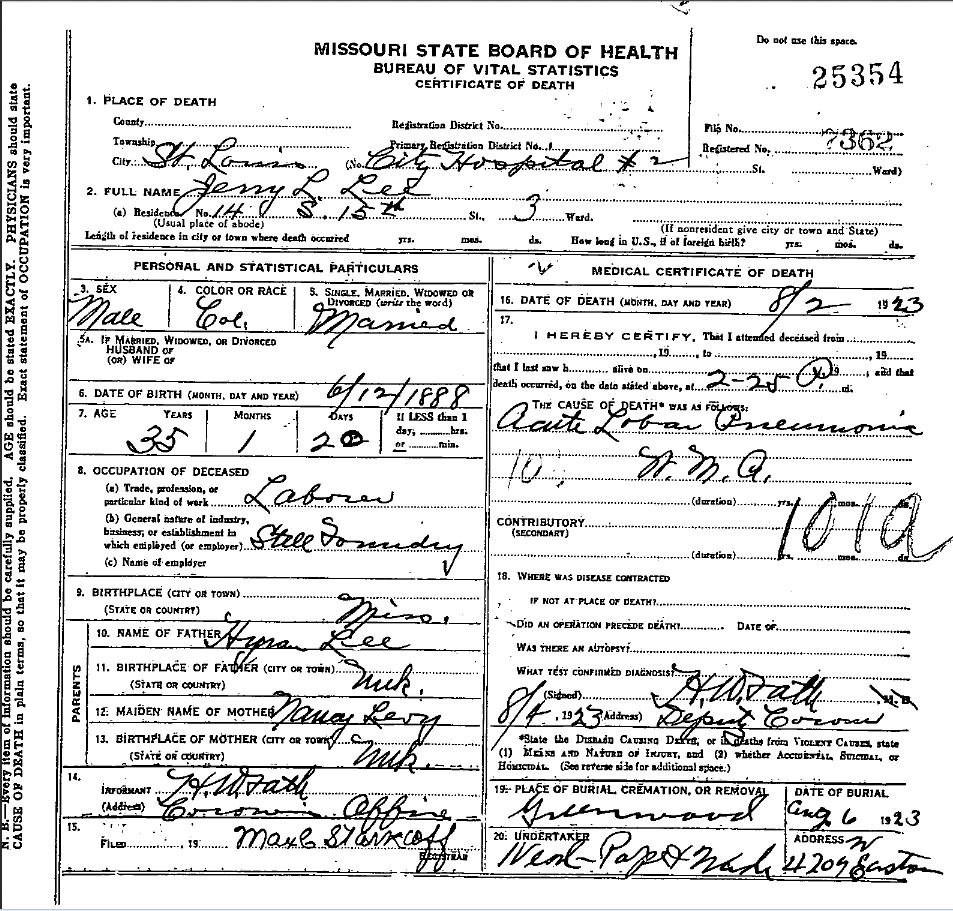 MISSOURI STATE BOARD OF HEALTH
BUREAU OF VITAL STATISTICS
CERTIFICATE OF DEATH
Do not use this space.
25354
1. PLACE OF DEATH
County
Registration District No.
File No.
Township
Primary Registration District No.
Registered No. 7362
City St. Louis (No. City Hospital #2 St. Ward)
2. FULL NAME Jerry L. Lee
(a) Residence No. 14 S. 15th St., 3 Ward.
(Usual place of abode) (If nonresident give city or town and State)
Length of residence in city or town where death occurred yrs. mos. ds. How long in U.S., if of foreign birth? yrs. mos. ds.
PERSONAL AND STATISTICAL PARTICULARS
3. SEX 4. COLOR OR RACE 5. SINGLE, MARRIED, WIDOWED OR DIVORCED (write the word)
Male Col. Married
5A. IF MARRIED, WIDOWED, OR DIVORCED
HUSBAND OF
(OR) WIFE OF
6. DATE OF BIRTH (MONTH, DAY AND YEAR) 6/12/1888
7. AGE YEARS MONTHS DAYS If LESS than 1 day, hrs. or min.
35 1 20
8. OCCUPATION OF DECEASED
(a) Trade, profession, or
particular kind of work Laborer
(b) General nature of industry,
business, or establishment in
which employed (or employer) Steel Foundry
(c) Name of employer
9. BIRTHPLACE (CITY OR TOWN)
(STATE OR COUNTRY) Miss.
PARENTS
10. NAME OF FATHER Hyran Lee
11. BIRTHPLACE OF FATHER (CITY OR TOWN)
(STATE OR COUNTRY) Unk.
12. MAIDEN NAME OF MOTHER Nancy Levy
13. BIRTHPLACE OF MOTHER (CITY OR TOWN)
(STATE OR COUNTRY) Unk.
14.
INFORMANT H.W. Fath
(Address) Coroners Office
15.
FILED 19 Max C Starkloff
REGISTRAR
MEDICAL CERTIFICATE OF DEATH
16. DATE OF DEATH (MONTH, DAY AND YEAR) 8/2 1923
17.
I HEREBY CERTIFY, That I attended deceased from
, 19 , to , 19
that I last saw h alive on , 19 , and that
death occurred, on the date stated above, at 2-25 P. m.
THE CAUSE OF DEATH* WAS AS FOLLOWS:
Acute Lobar Pneumonia
10. N. M. A.
(duration) yrs. mos. ds.
CONTRIBUTORY
(SECONDARY)
101a
(duration) yrs. mos. ds.
18. WHERE WAS DISEASE CONTRACTED
IF NOT AT PLACE OF DEATH?
DID AN OPERATION PRECEDE DEATH? DATE OF
WAS THERE AN AUTOPSY?
WHAT TEST CONFIRMED DIAGNOSIS?
(Signed) H.W. Fath M.D.
8/4, 1923 (Address) Deputy Coroner
*State the DISEASE CAUSING DEATH, or in deaths from VIOLENT CAUSES, state
(1) MEANS AND NATURE OF INJURY, and (2) whether ACCIDENTAL, SUICIDAL, or
HOMICIDAL. (See reverse side for additional space.)
19. PLACE OF BURIAL, CREMATION, OR REMOVAL DATE OF BURIAL
Greenwood Aug 6 1923
20. UNDERTAKER ADDRESS
4209 Easton
N. B.—Every item of information should be carefully supplied. AGE should be stated EXACTLY. PHYSICIANS should state
CAUSE OF DEATH in plain terms, so that it may be properly classified. Exact statement of OCCUPATION is very important.